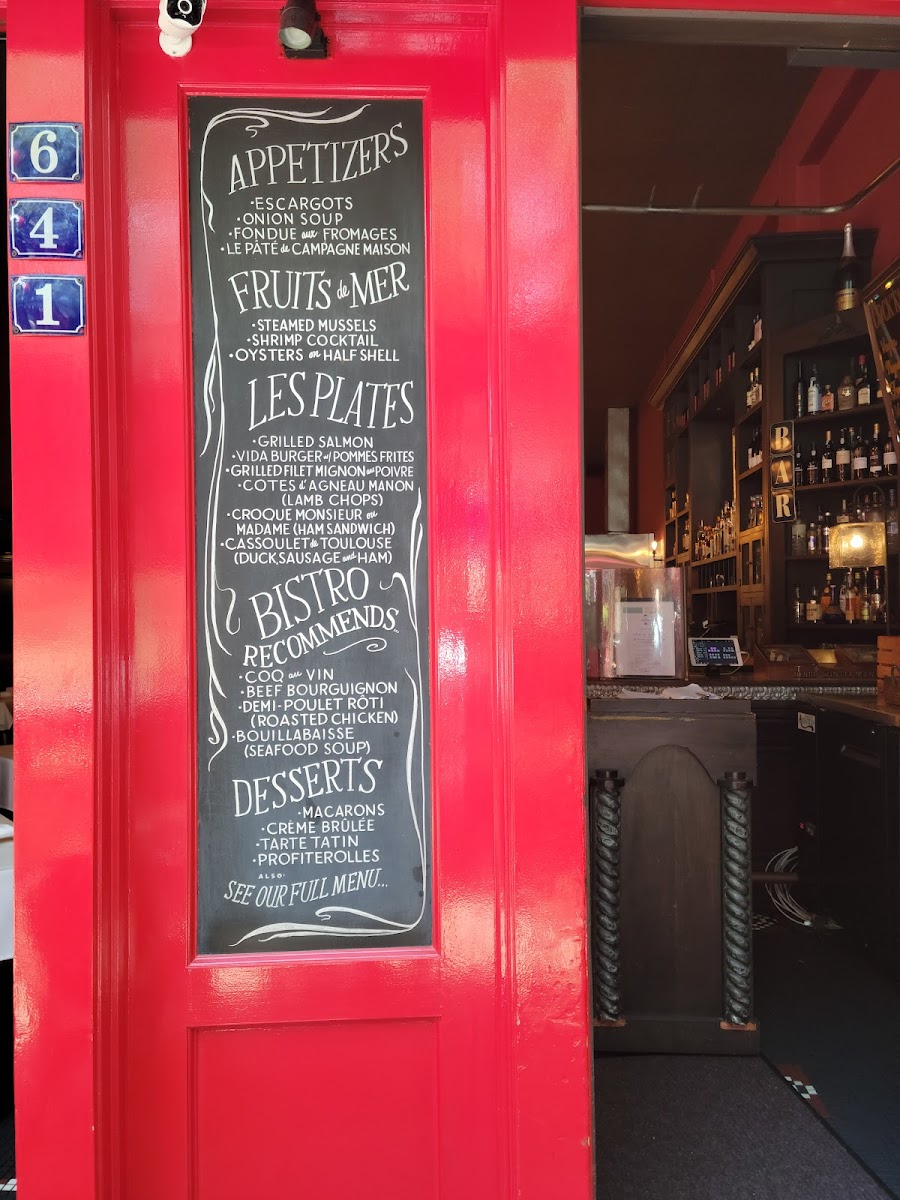 6
4
1
APPETIZERS
·ESCARGOTS
·ONION SOUP
·FONDUE aux FROMAGES
·LE PÂTÉ de CAMPAGNE MAISON
FRUITS de MER
·STEAMED MUSSELS
·SHRIMP COCKTAIL
·OYSTERS on HALF SHELL
LES PLATES
·GRILLED SALMON
·VIDA BURGER w/ POMMES FRITES
·GRILLED FILET MIGNON au POIVRE
·COTES d'AGNEAU MANON
(LAMB CHOPS)
·CROQUE MONSIEUR ou
MADAME (HAM SANDWICH)
·CASSOULET de TOULOUSE
(DUCK SAUSAGE and HAM)
BISTRO
RECOMMENDS...
·COQ au VIN
·BEEF BOURGUIGNON
·DEMI-POULET RÔTI
(ROASTED CHICKEN)
·BOUILLABAISSE
(SEAFOOD SOUP)
DESSERTS
·MACARONS
·CRÈME BRÛLÉE
·TARTE TATIN
·PROFITEROLLES
ALSO·
SEE OUR FULL MENU...
BAR